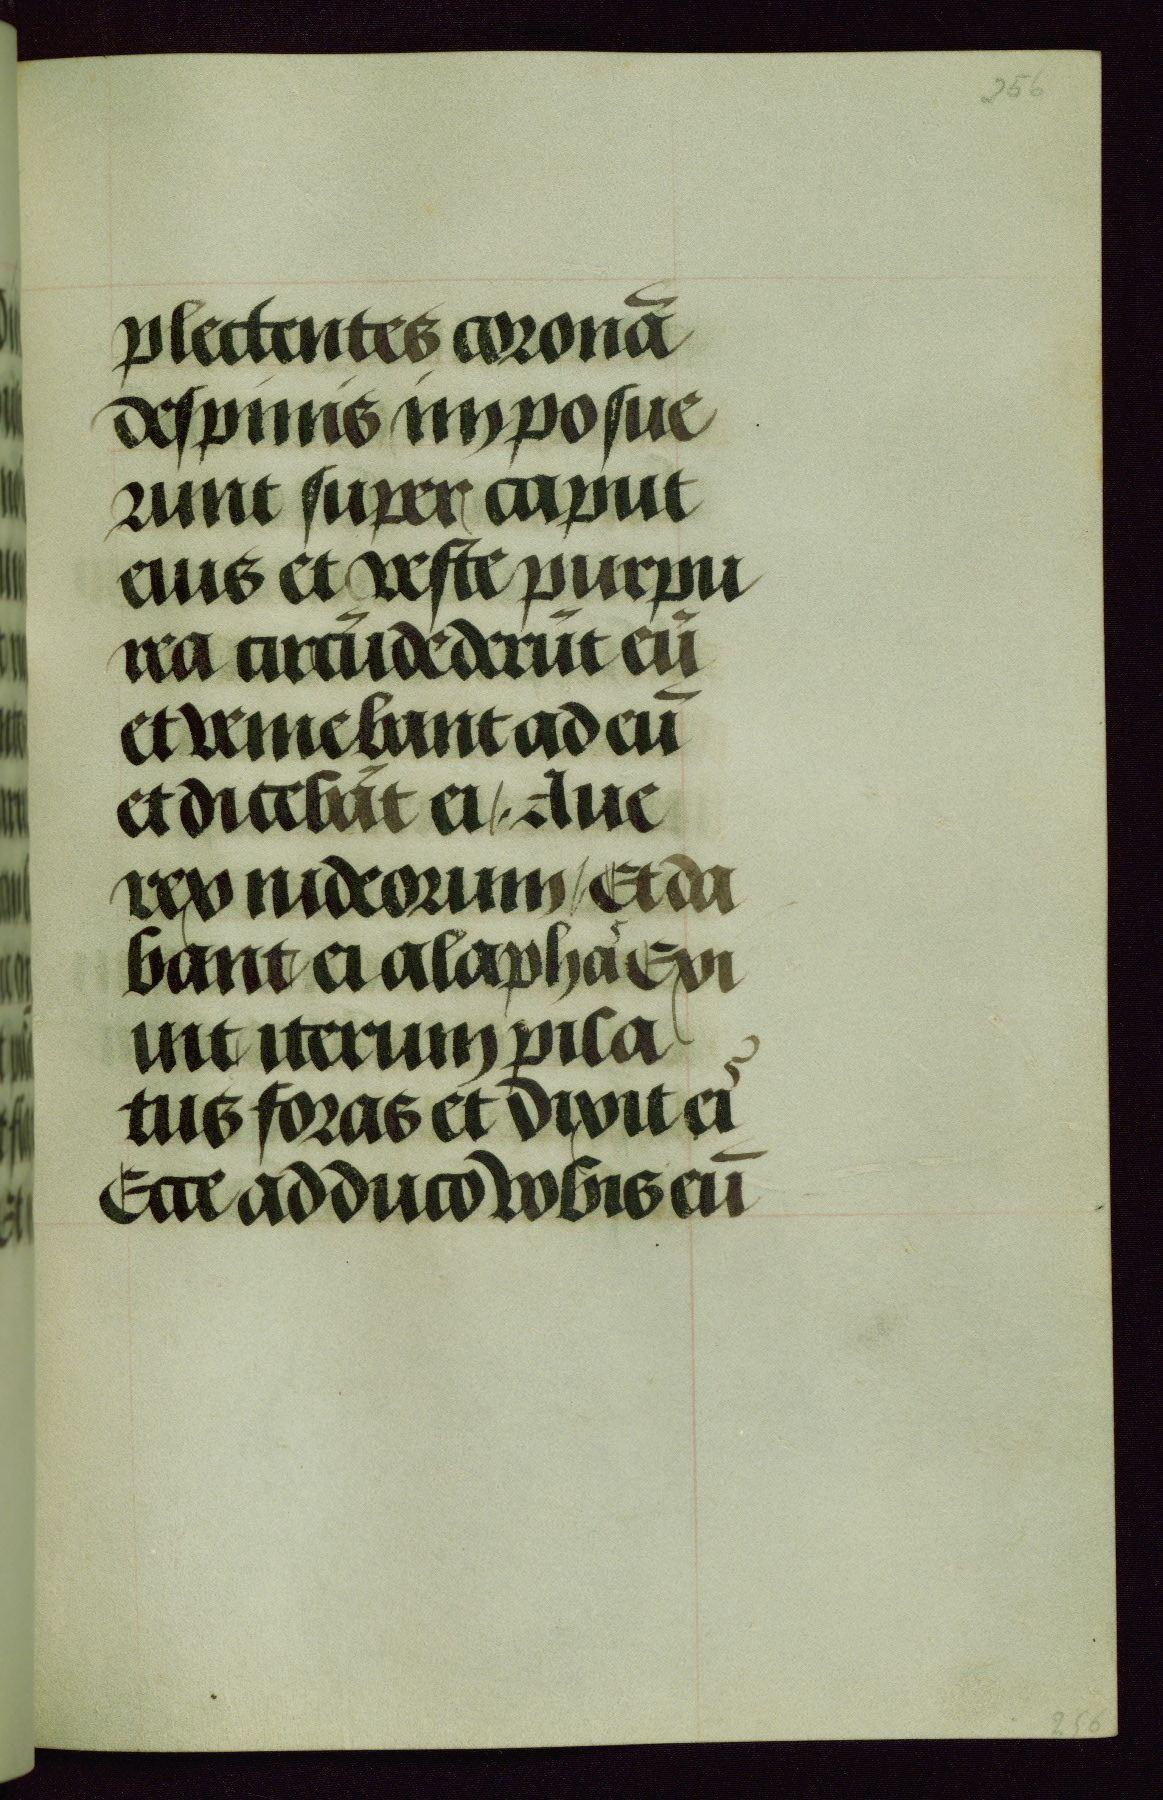 256
plectentes coronā
despinis imposue
runt super caput
eius et veste purpu
rea circūdederūt eū
et veniebant ad eū
et dicebāt ei /. Aue
rex iudeorum / Et da
bant ei alaphas Exi
uit iterum pila
tus foras et dixit eis
Ecce adduco vobis eū
256